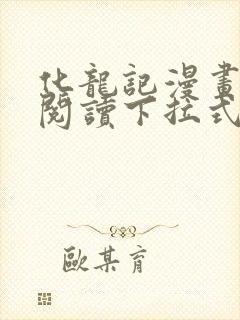 化龍記漫畫
閱讀下拉式
歐某育